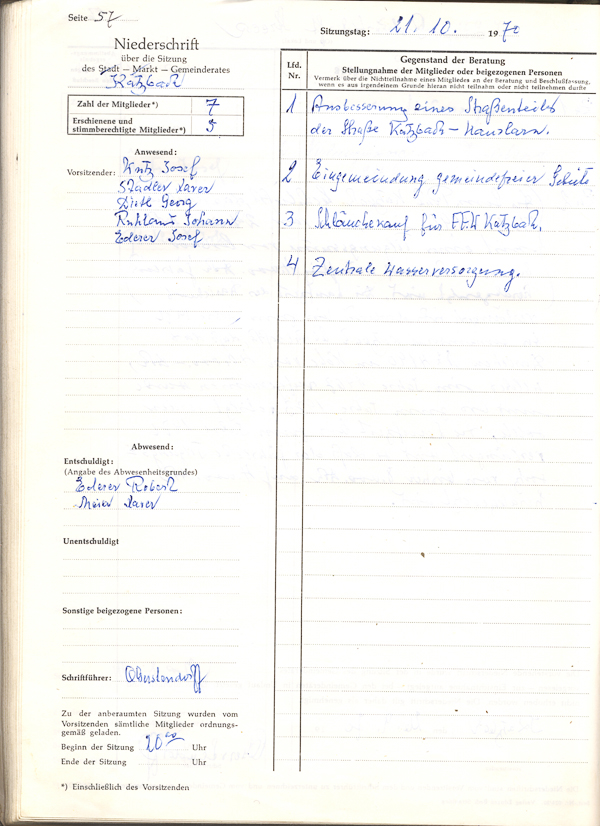 Seite 57
Sitzungstag: 21. 10. 1970
Niederschrift
über die Sitzung
des Stadt – Markt – Gemeinderates
Katzbach
Zahl der Mitglieder*) 7
Erschienene und
stimmberechtigte Mitglieder*) 5
Anwesend:
Vorsitzender: Kurz Josef
Stadler Xaver
Dietl Georg
Ruhland Johann
Ederer Josef
Abwesend:
Entschuldigt:
(Angabe des Abwesenheitsgrundes)
Ederer Robert
Meier Xaver
Unentschuldigt
Sonstige beigezogene Personen:
Schriftführer:
Zu der anberaumten Sitzung wurden vom
Vorsitzenden sämtliche Mitglieder ordnungs-
gemäß geladen.
Beginn der Sitzung 20 00 Uhr
Ende der Sitzung Uhr
*) Einschließlich des Vorsitzenden
Lfd.
Nr.
Gegenstand der Beratung
Stellungnahme der Mitglieder oder beigezogenen Personen
Vermerk über die Nichtteilnahme eines Mitglieds an der Beratung und Beschlußfassung,
wenn es aus irgendeinem Grunde hieran nicht teilnahm oder nicht teilnehmen durfte
1 Ausbesserung eines Straßenteils
der Straße Katzbach – Hauslarn.
2 Eingemeindung gemeindefreier Gebiete
3 Schläuchekauf für FFW Katzbach.
4 Zentrale Wasserversorgung.